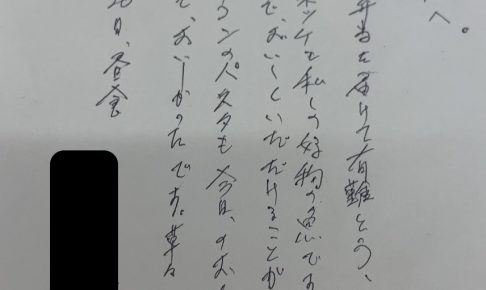 へ。
弁当を届けて有難とう、
ホッケで私しの好物の魚です
で、おいしくいただけることが
ンのパスタも今日、
て、おいしかったです。草々
日、昼食